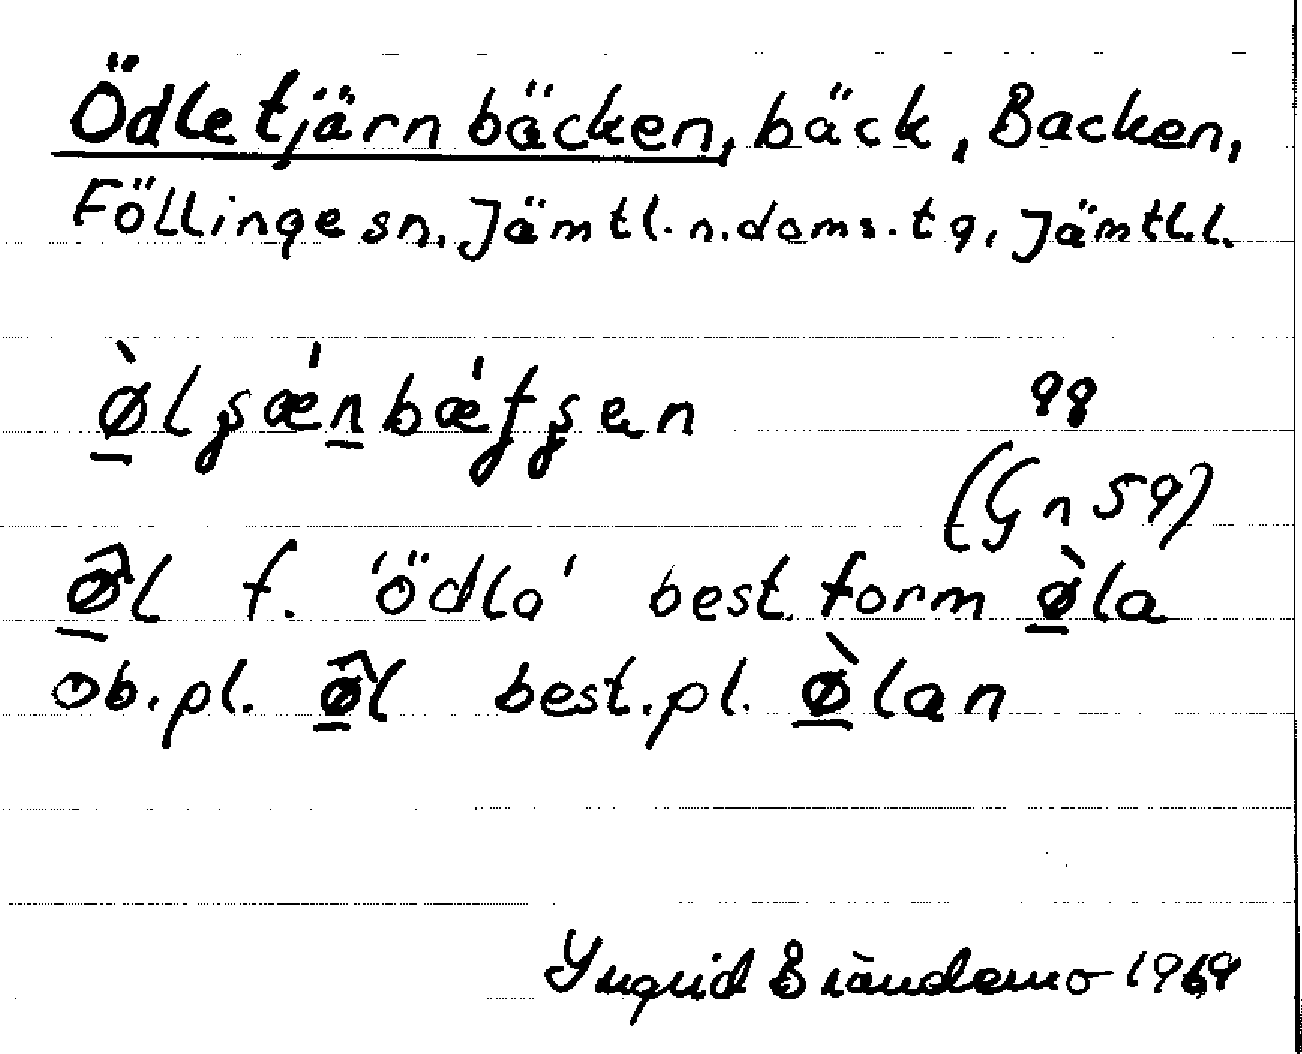 Ödletjärnbäcken, bäck, Backen,
Föllinge sn. Jämtl. n. doms. tg, Jämtl. l.
ø̀lʂǽnbǽtʂen 98
(Gn 59)
ø̂l f. 'ödla' best. form ø̀la
ob. pl. ø̂l best. pl. ø̀lan
Yngrid Brändemo 1969